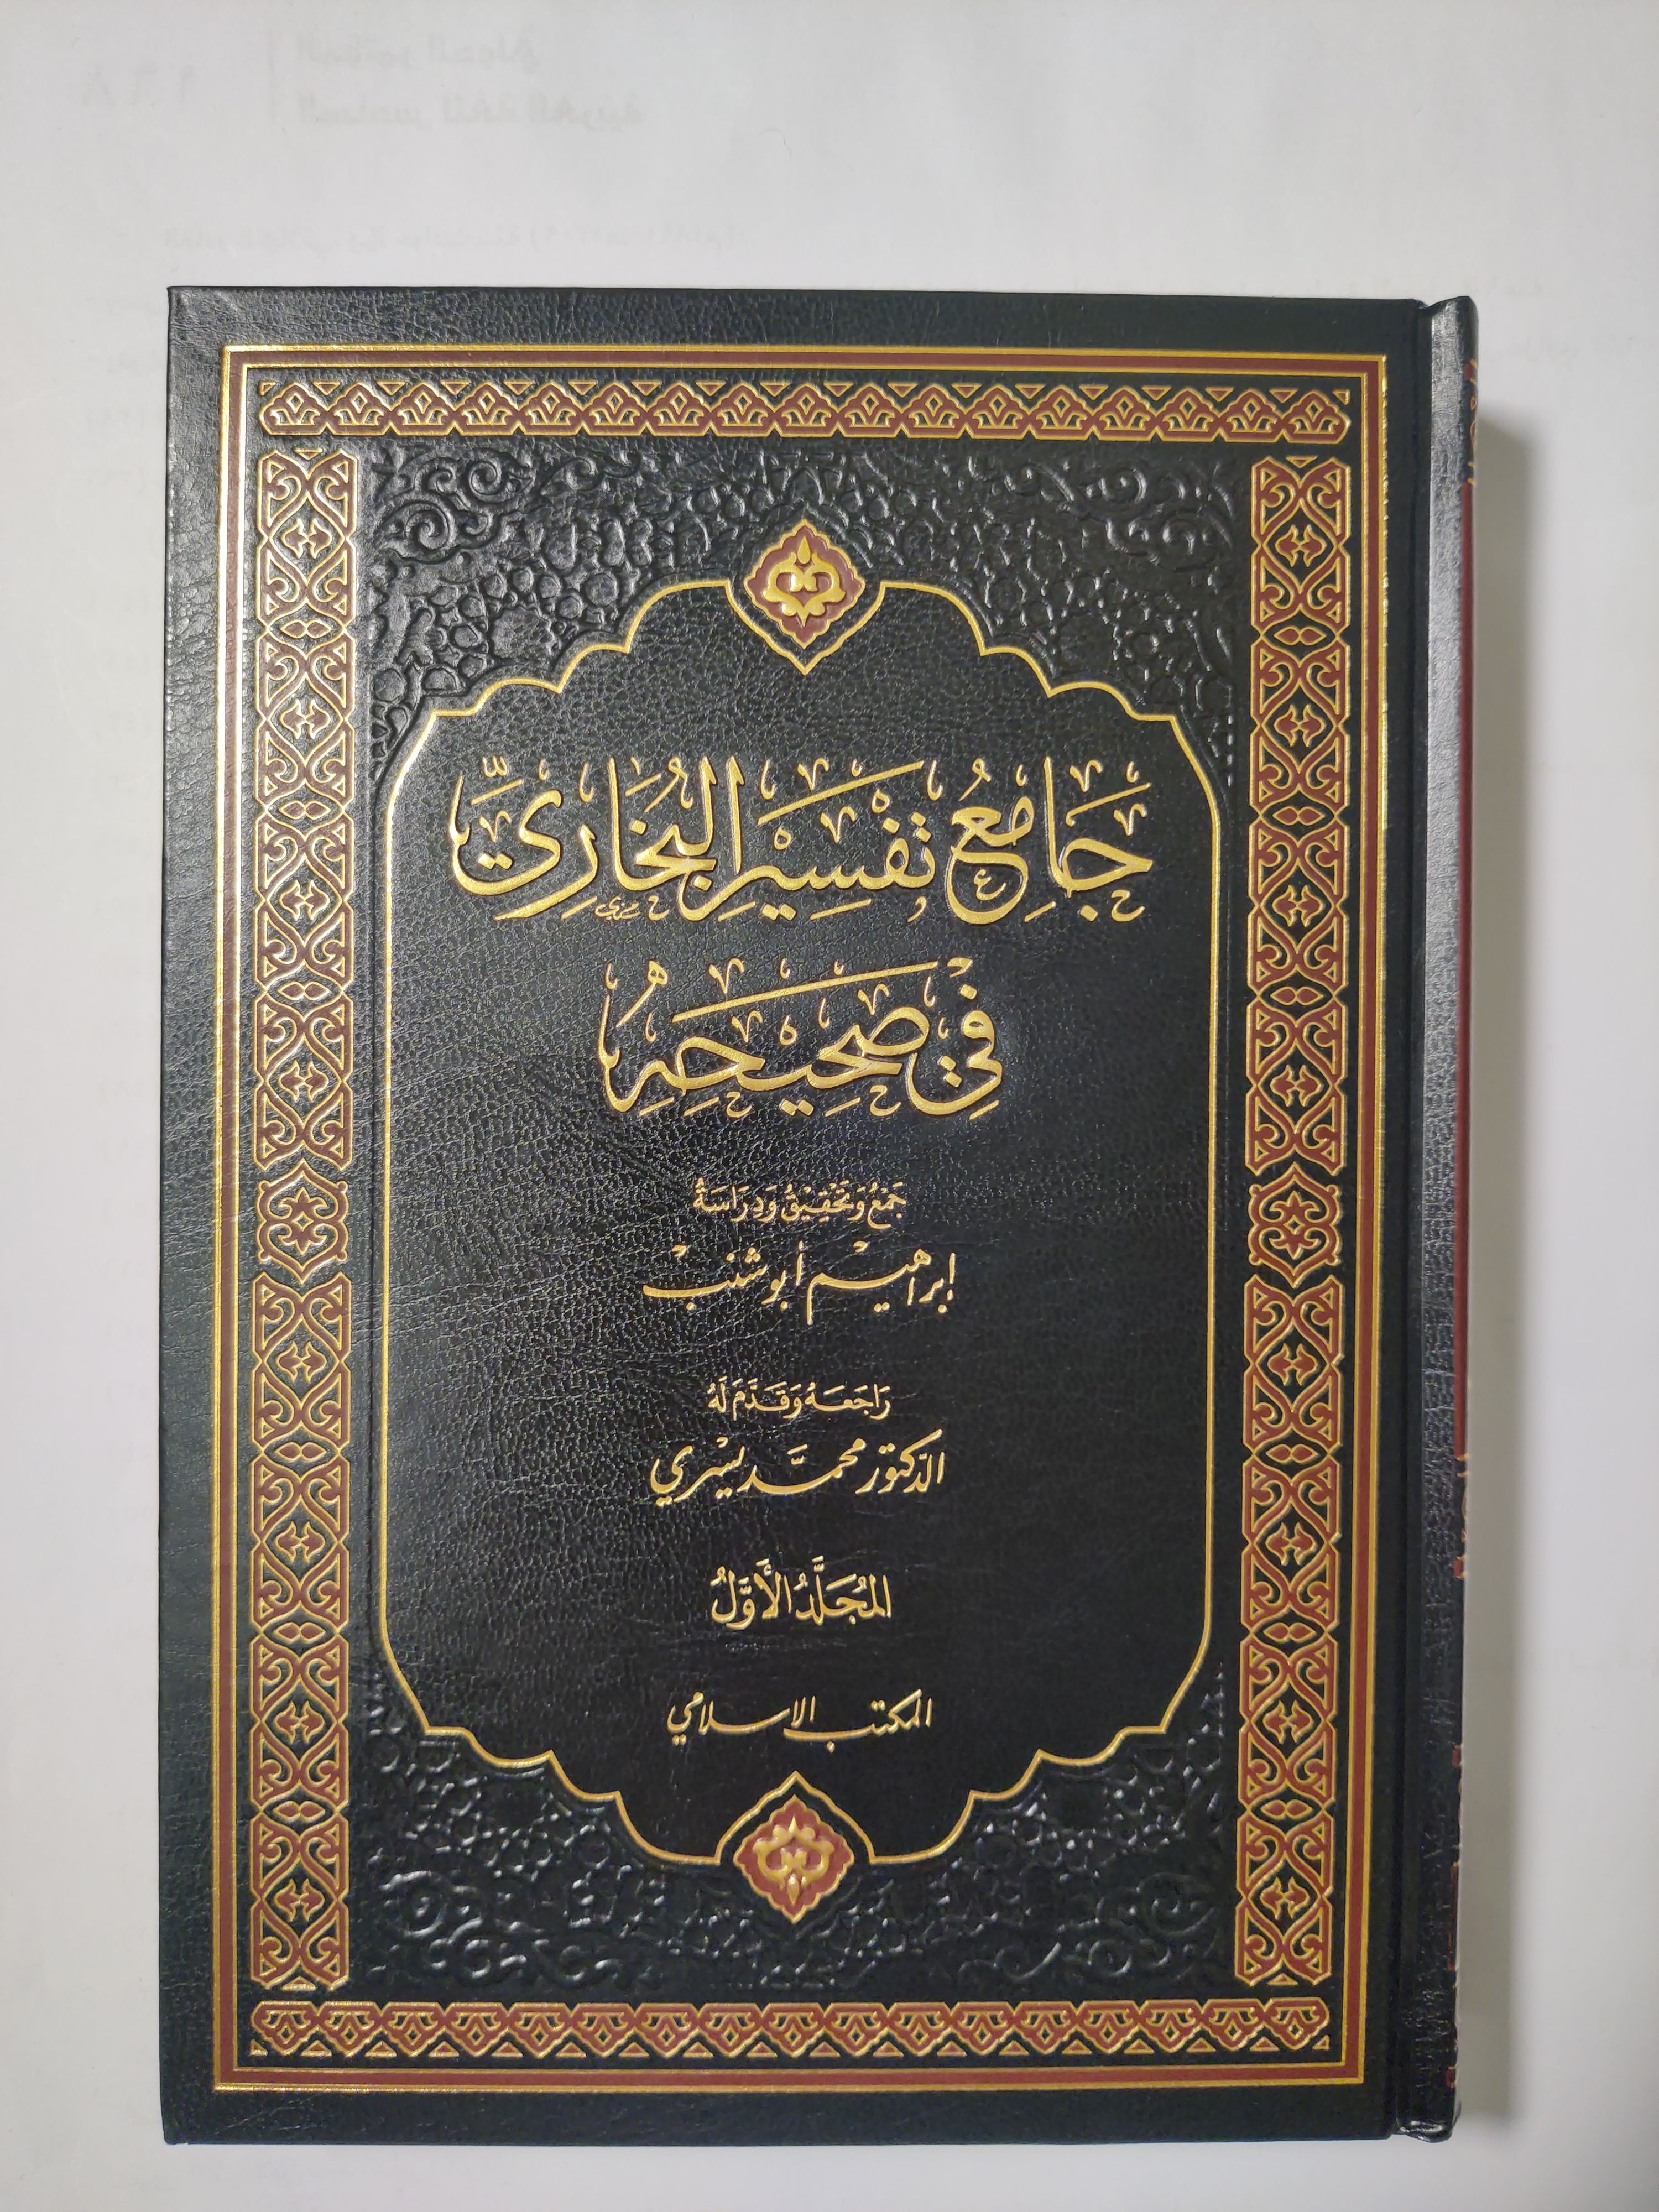 جَامِعُ تَفْسِيرِ البُخَارِيِّ
فِي صَحِيحِهِ
جَمْعُ وَتَحْقِيْقُ وَدِرَاسَةُ
إبراهيم أبو شنب
رَاجَعَهُ وَقَدَّمَ لَهُ
الدّكتور محمَّد يسْري
المُجَلَّدُ الأَوَّلُ
المكتب الاسلامي